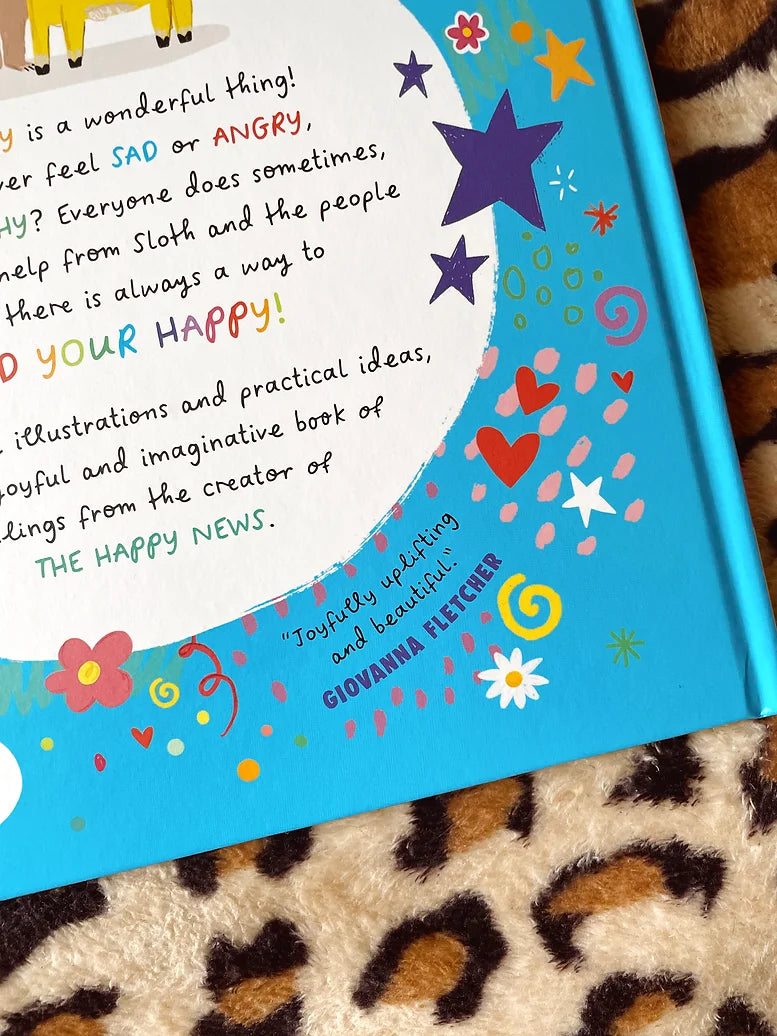 Y is a wonderful thing!
ver feel SAD or ANGRY,
HY? Everyone does sometimes,
help from Sloth and the people
there is always a way to
D YOUR HAPPY!
illustrations and practical ideas,
joyful and imaginative book of
lings from the creator of
THE HAPPY NEWS.
"Joyfully uplifting
and beautiful."
GIOVANNA FLETCHER